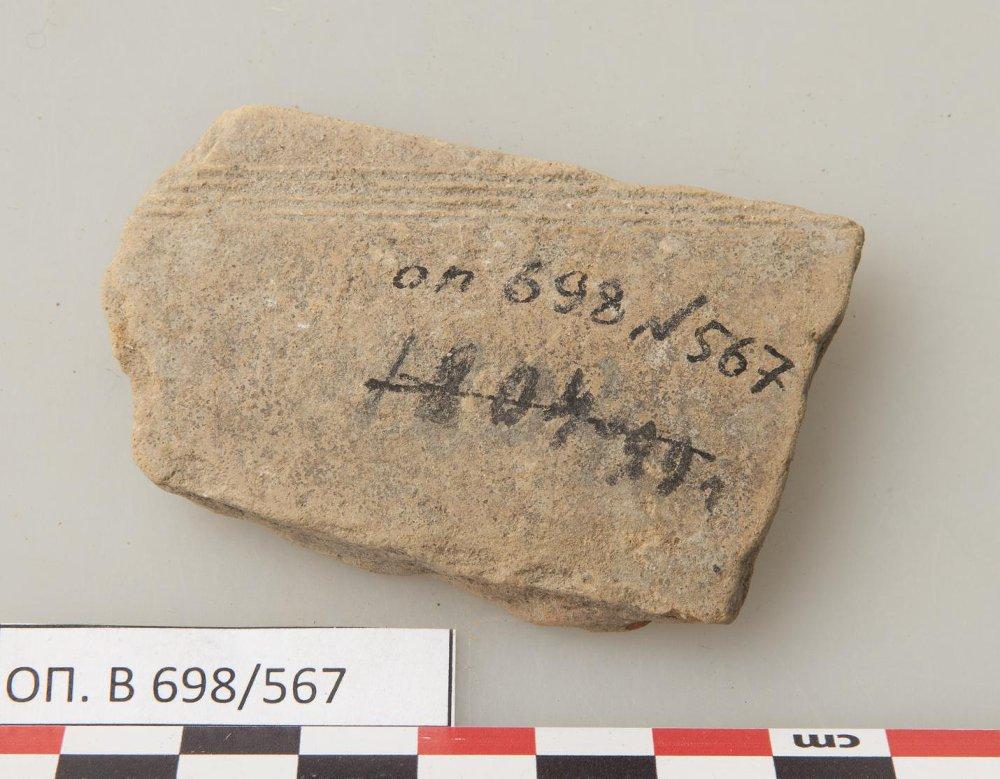 оп 698 №567
ОП. В 698/567
cm